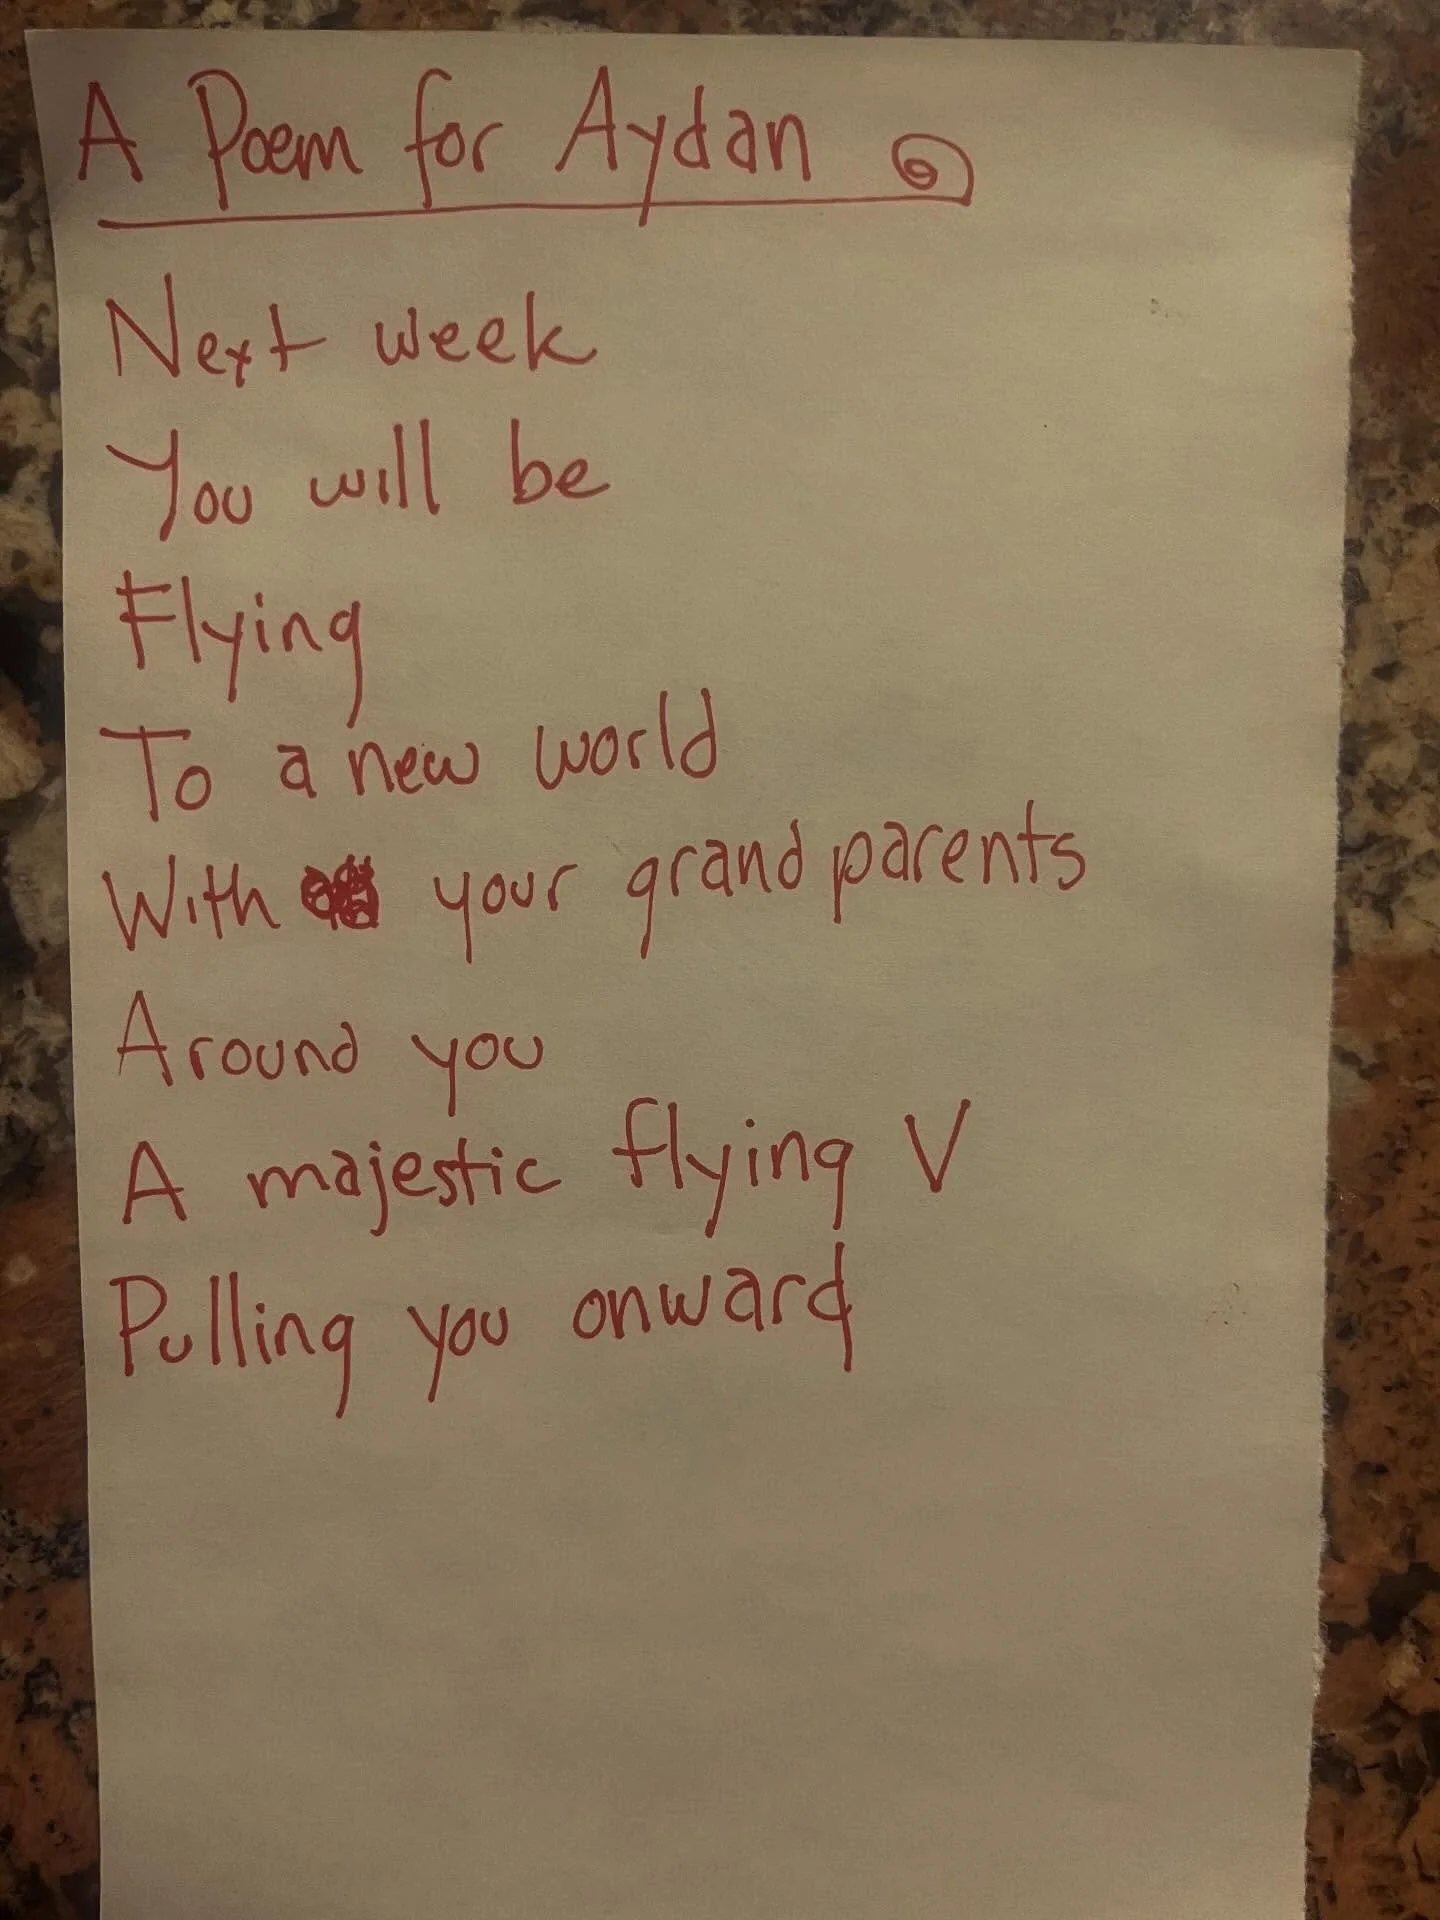 A Poem for Aydan
Next week
You will be
Flying
To a new world
With your grandparents
Around you
A majestic flying V
Pulling you onward